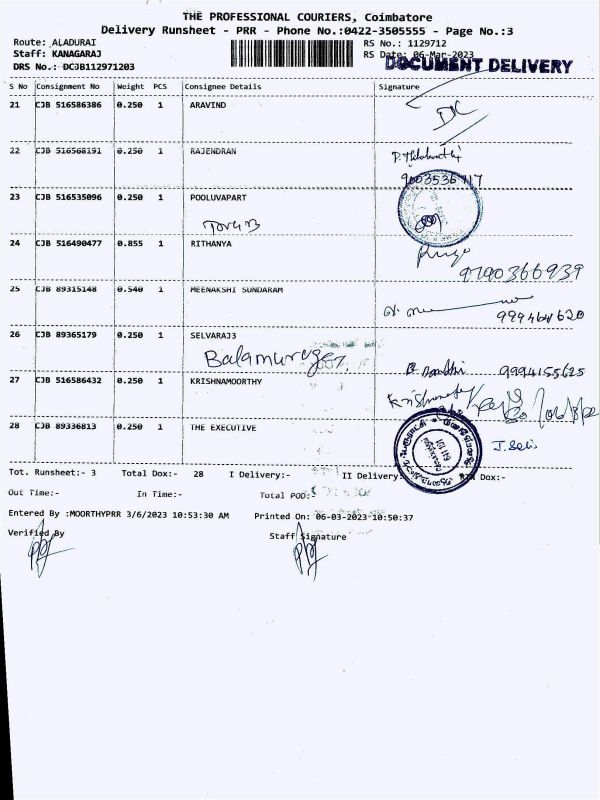 THE PROFESSIONAL COURIERS, Coimbatore
Delivery Runsheet - PRR - Phone No.:0422-3505555 - Page No.:3
Route: ALADURAI
RS No.: 1129712
Staff: KANAGARAJ
RS Date: 06-Mar-2023
DOCUMENT DELIVERY
DRS No.: DCJB112971203
S No Consignment No Weight PCS Consignee Details Signature
21 CJB 516586386 0.250 1 ARAVIND
22 CJB 516568191 0.250 1 RAJENDRAN
23 CJB 516535096 0.250 1 POOLUVAPART
24 CJB 516490477 0.855 1 RITHANYA
9790366939
25 CJB 89315148 0.540 1 MEENAKSHI SUNDARAM
26 CJB 89365179 0.250 1 SELVARAJ3
9994155625
27 CJB 516586432 0.250 1 KRISHNAMOORTHY
28 CJB 89336813 0.250 1 THE EXECUTIVE
Tot. Runsheet:- 3 Total Dox:- 28 I Delivery:- II Delivery: Dox:-
Out Time:- In Time:- Total POD:
Entered By :MOORTHYPRR 3/6/2023 10:53:30 AM Printed On: 06-03-2023 10:50:37
Verified By Staff Signature